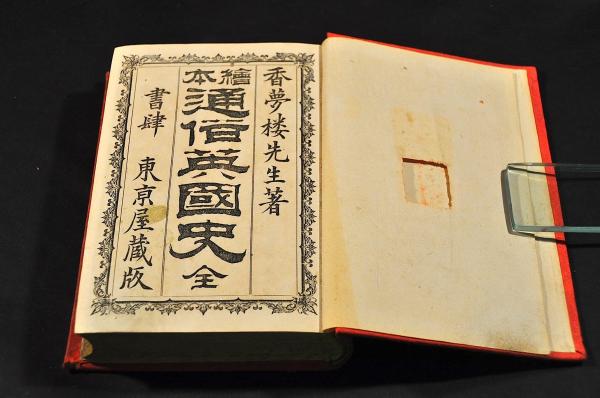 香夢楼先生著
繪本
通俗英國史全
書肆 東京屋蔵版